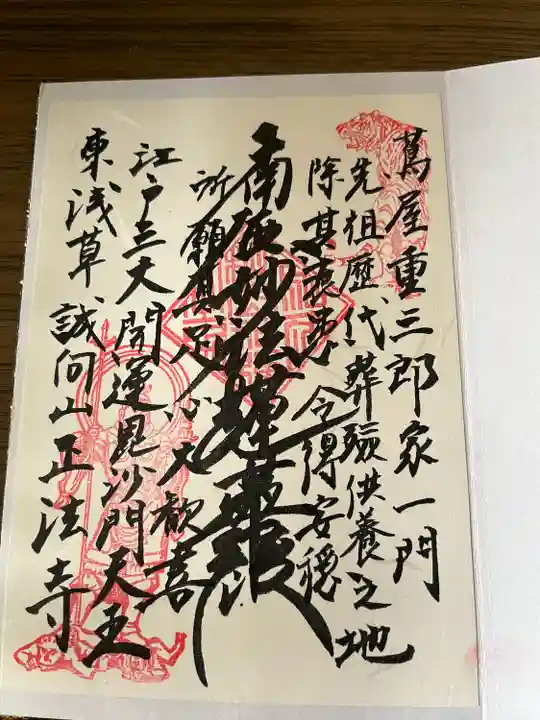 蔦屋重三郎家一門
先祖歴代葬殮供養之地
除其衰患令得安穏
南無妙法蓮華経
所願具足心大歓喜
江戸三大開運毘沙門天王
東浅草誠向山正法寺